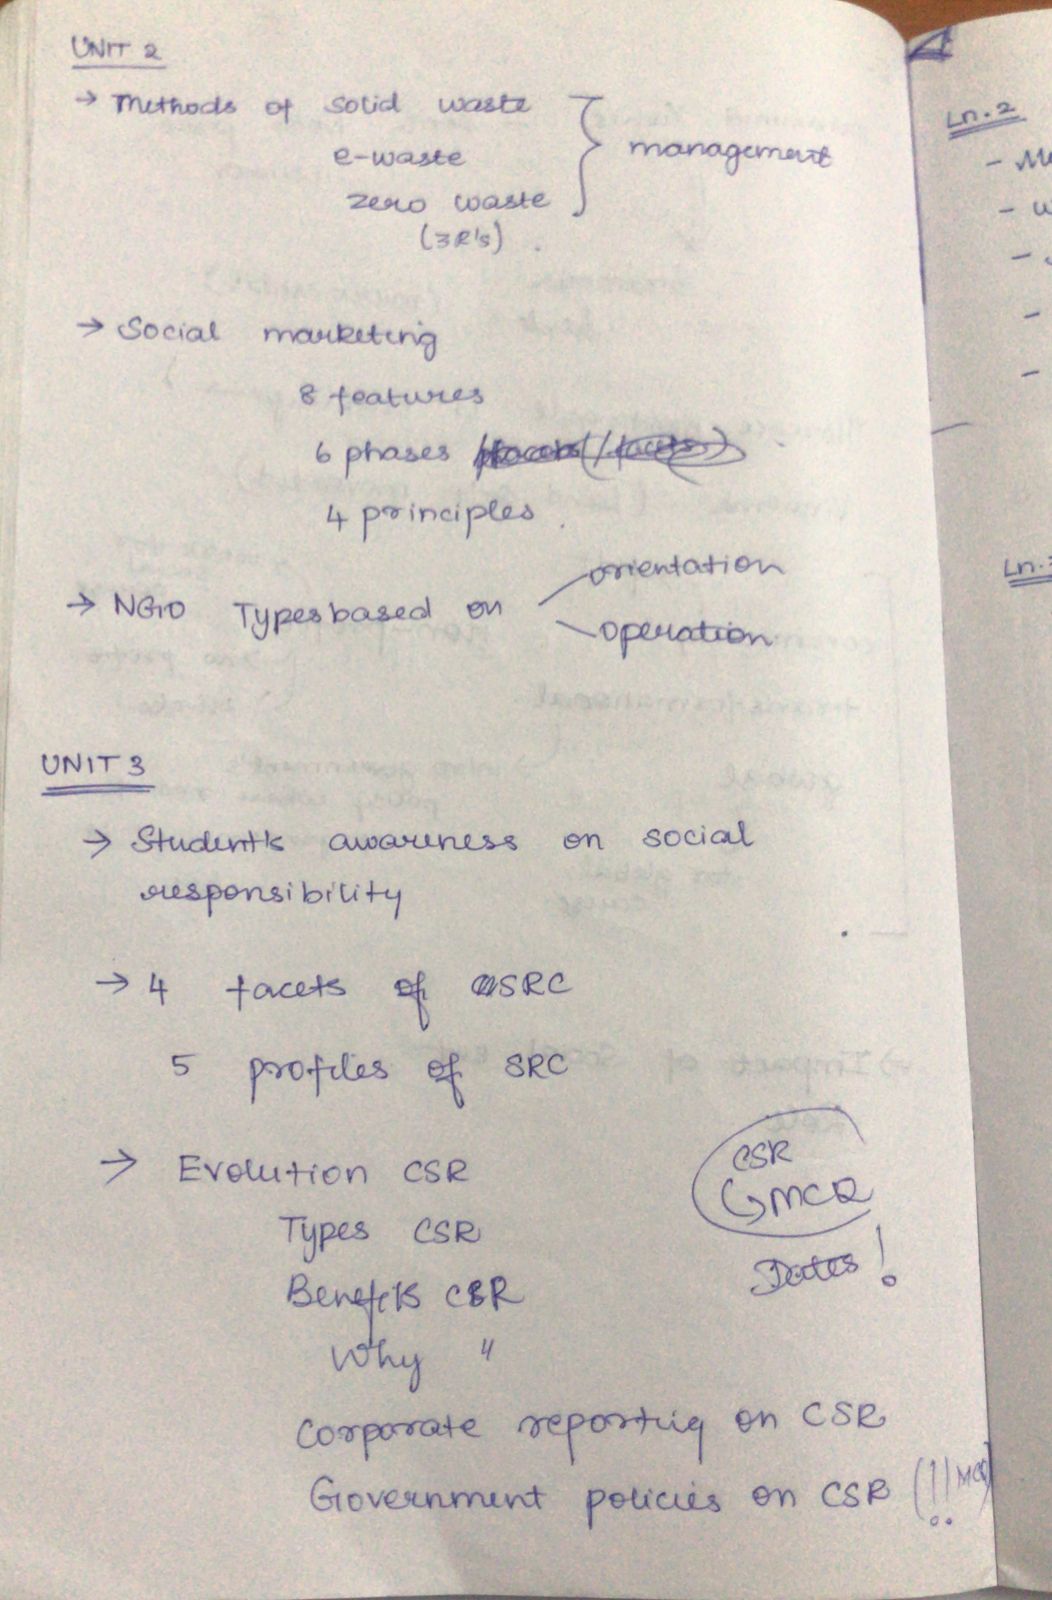 UNIT 2
→ Methods of solid waste
e-waste
zero waste
(3R's)
management
→ Social marketing
8 features
6 phases
4 principles
→ NGO Types based on
orientation
operation
UNIT 3
→ Student's awareness on social
responsibility
→ 4 facets of SRC
5 profiles of SRC
→ Evolution CSR
Types CSR
Benefits CSR
Why "
Corporate reporting on CSR
Government policies on CSR (!! MCQ)
CSR
↳ MCQ
Dates!
Ln. 2